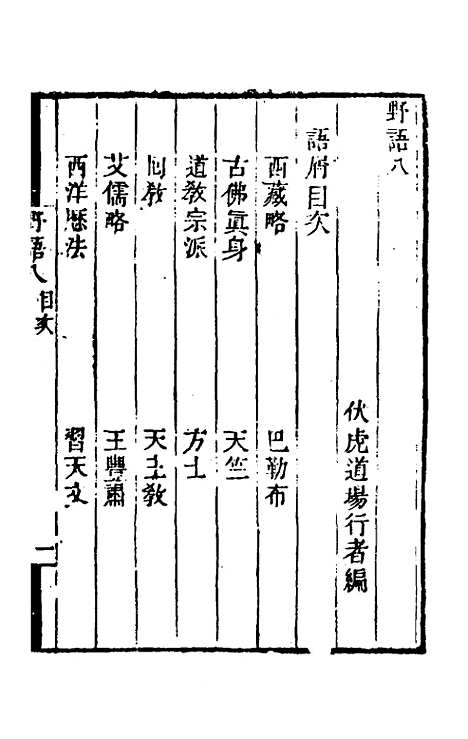 野語八
伏虎道場行者編
語屑目次
西藏略 巴勒布
古佛眞身 天竺
道敎宗派 方士
回敎 天主敎
艾儒略 王豐肅
西洋厯法 習天文
野語八 目次 一